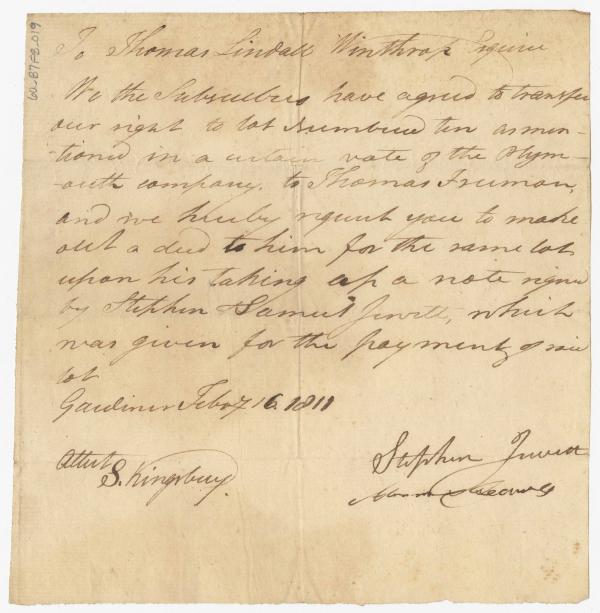 60-87F8.019
To Thomas Lindall Winthrop Esquire
We the Subscribers have agreed to transfer
our right to lot Numbered ten as men-
-tioned in a certain vote of the Plym-
-outh company, to Thomas Freeman,
and we hereby request you to make
out a deed to him for the same lot
upon his taking up a note signed
by Stephen & Samuel Jewett, which
was given for the payment of said
lot
Gardiner Feby 16. 1811
Attest
S. Kingsbury
Stephen Jewett